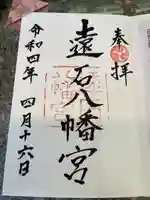 奉拝
遠石八幡宮
令和四年 四月十六日